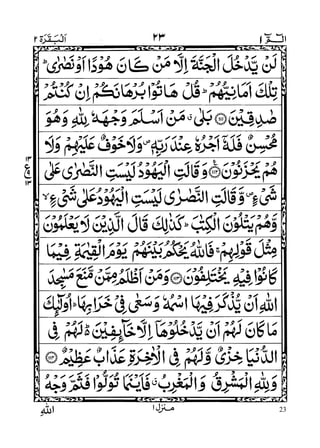 الٓمّٓ ١ ٢٣ اَلْبَقَرَة ٢
لَنْ يَّدْخُلَ الْجَنَّةَ اِلَّا مَنْ كَانَ هُوْدًا اَوْ نَصٰرٰى ؕ
تِلْكَ اَمَانِيُّهُمْ ؕ قُلْ هَاتُوْا بُرْهَانَكُمْ اِنْ كُنْتُمْ
صٰدِقِيْنَ ﴿۱۱۱﴾ بَلٰى ٭ مَنْ اَسْلَمَ وَجْهَهٗ لِلّٰهِ وَهُوَ
مُحْسِنٌ فَلَهٗٓ اَجْرُهٗ عِنْدَ رَبِّهٖ ۪ وَلَا خَوْفٌ عَلَيْهِمْ وَلَا
هُمْ يَحْزَنُوْنَ ﴿۱۱۲﴾ وَقَالَتِ الْيَهُوْدُ لَيْسَتِ النَّصٰرٰى عَلٰى
شَيْءٍ ۪ وَّقَالَتِ النَّصٰرٰى لَيْسَتِ الْيَهُوْدُ عَلٰى شَيْءٍ ۙ
وَّهُمْ يَتْلُوْنَ الْكِتٰبَ ؕ كَذٰلِكَ قَالَ الَّذِيْنَ لَا يَعْلَمُوْنَ
مِثْلَ قَوْلِهِمْ ۚ فَاللّٰهُ يَحْكُمُ بَيْنَهُمْ يَوْمَ الْقِيٰمَةِ فِيْمَا
كَانُوْا فِيْهِ يَخْتَلِفُوْنَ ﴿۱۱۳﴾ وَمَنْ اَظْلَمُ مِمَّنْ مَّنَعَ مَسٰجِدَ
اللّٰهِ اَنْ يُّذْكَرَ فِيْهَا اسْمُهٗ وَسَعٰى فِيْ خَرَابِهَا ؕ اُولٰٓئِكَ
مَا كَانَ لَهُمْ اَنْ يَّدْخُلُوْهَآ اِلَّا خَآئِفِيْنَ ؕ لَهُمْ فِي
الدُّنْيَا خِزْيٌ وَّلَهُمْ فِي الْاٰخِرَةِ عَذَابٌ عَظِيْمٌ ﴿۱۱۴﴾
وَلِلّٰهِ الْمَشْرِقُ وَالْمَغْرِبُ ٭ فَاَيْنَمَا تُوَلُّوْا فَثَمَّ وَجْهُ
اللّٰهِ منزل ١ 23